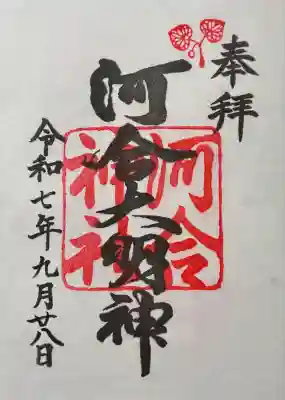 奉拝
河合大明神
令和七年九月廿八日
河合